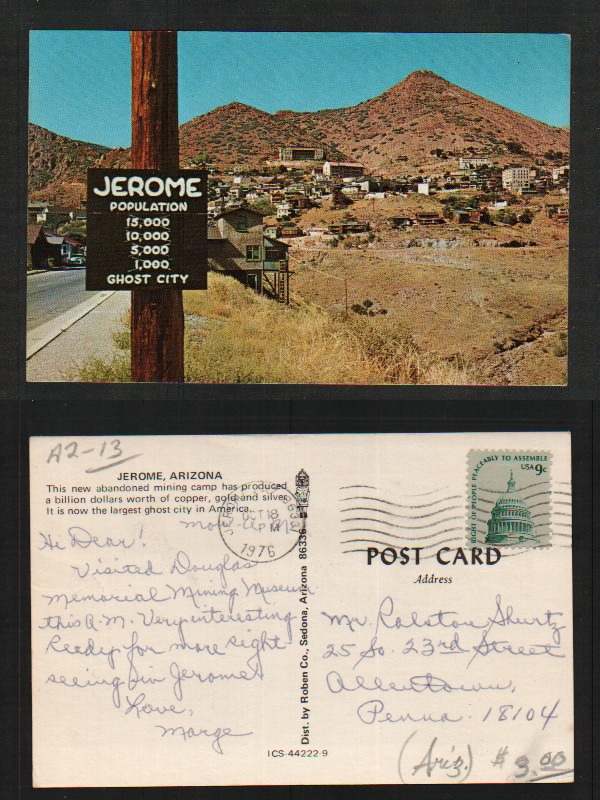 JEROME
POPULATION
15,000
10,000
5,000
1,000
GHOST CITY
A2-13
JEROME, ARIZONA
This new abandoned mining camp has produced
a billion dollars worth of copper, gold and silver.
It is now the largest ghost city in America.
OCT 18
PM
1976
Hi Dear!
Visited Douglas
Memorial Mining Museum
this A.M. Very interesting
Ready for more sight
seeing in Jerome
Love,
Marge
Dist. by Roben Co., Sedona, Arizona 86336
ICS-44222-9
RIGHT OF PEOPLE PEACEABLY TO ASSEMBLE
USA 9c
POST CARD
Address
Mr. Ralston Shurtz
25 So. 23rd Street
Allentown,
Penna. 18104
(Ariz.) $3.00